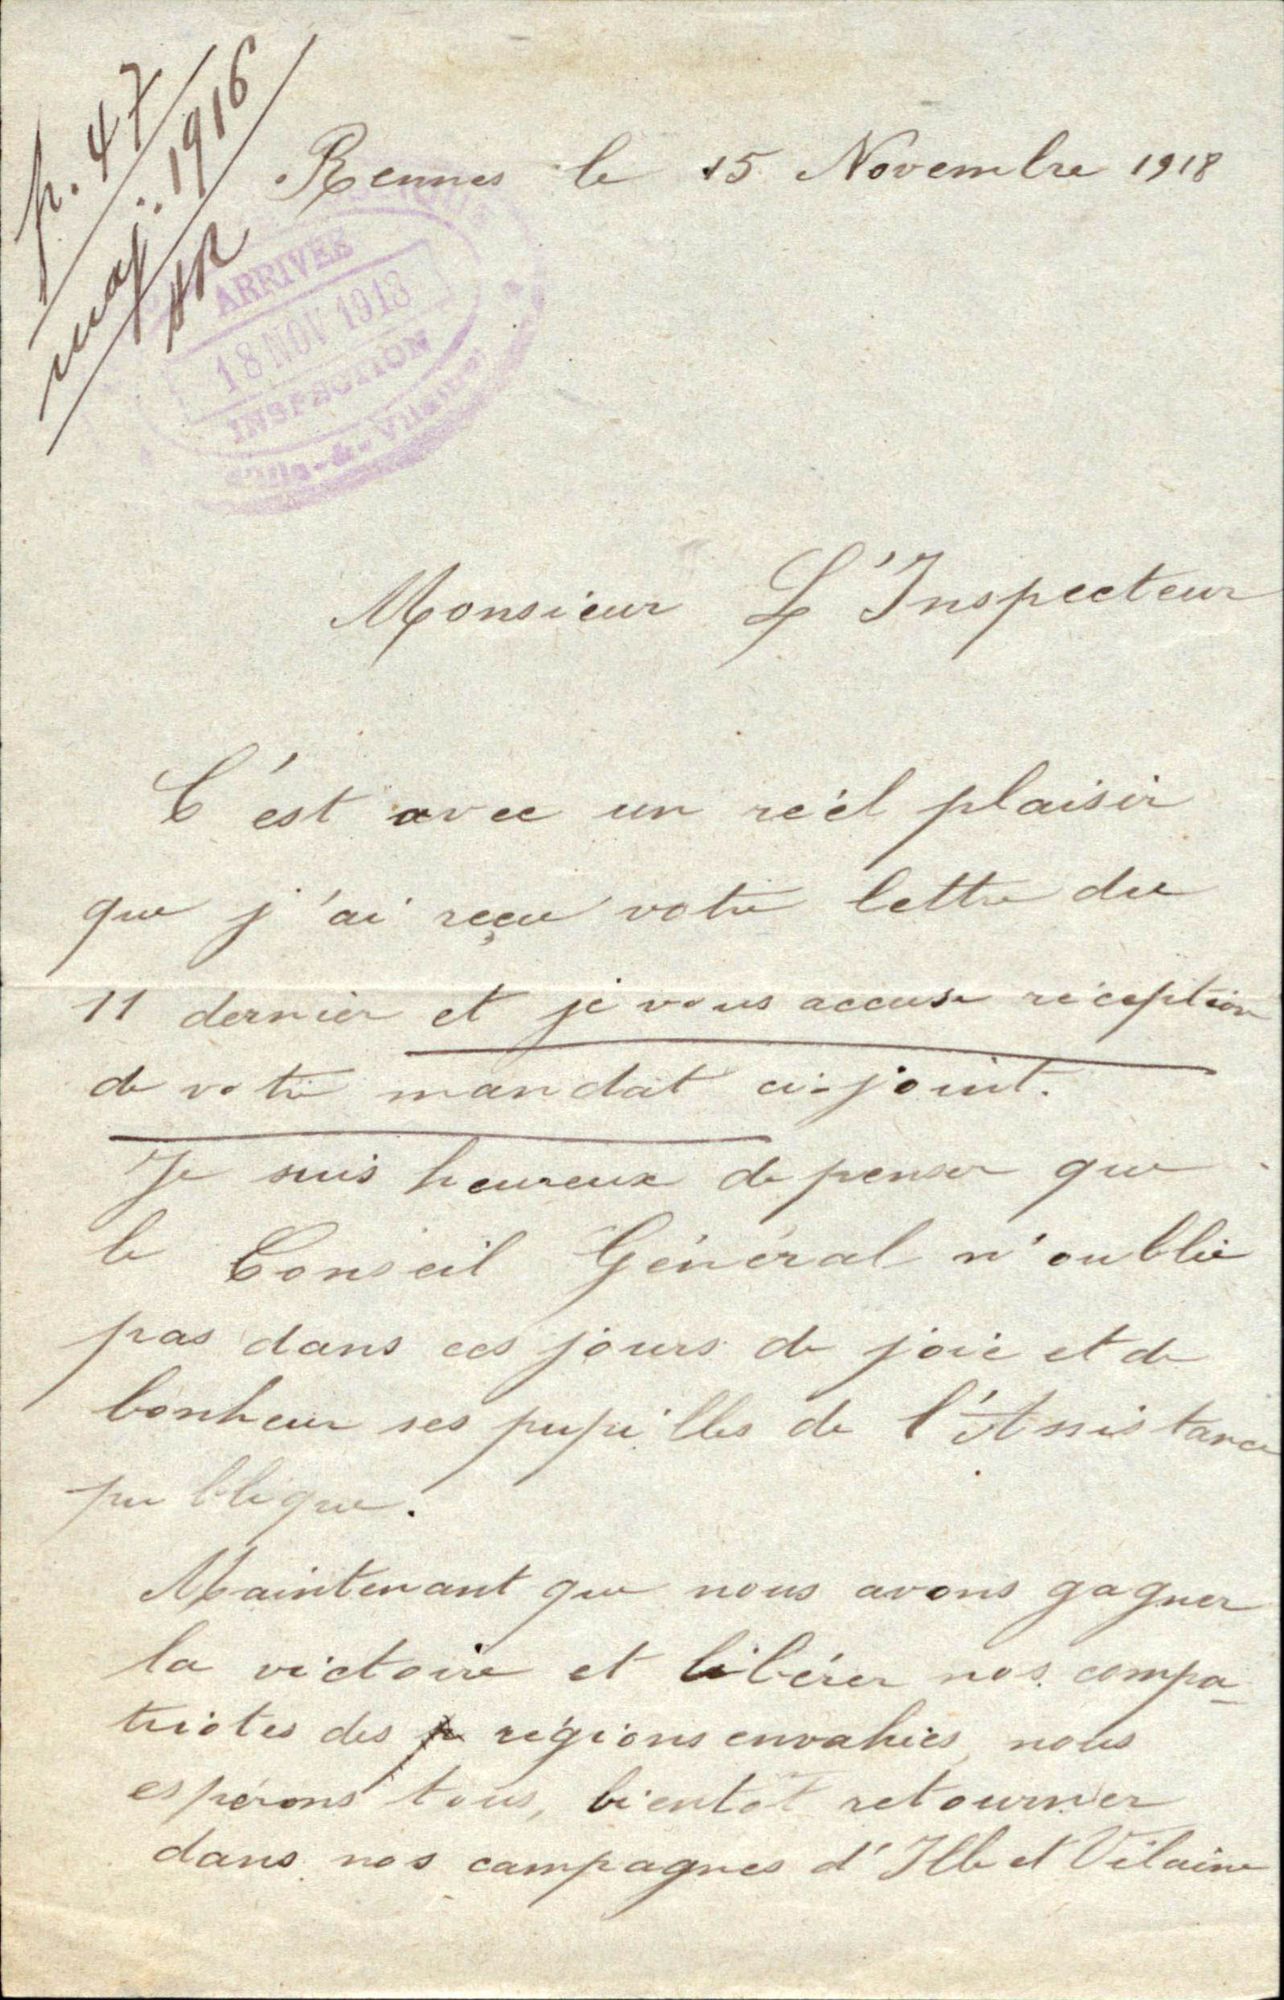 p. 47
maj. 1916
AR
Rennes le 15 Novembre 1918
ARRIVÉE
18 NOV 1918
INSPECTION
Ille-&-Vilaine
Monsieur L'Inspecteur
C'est avec un réel plaisir
que j'ai reçu votre lettre du
11 dernier et je vous accuse réception
de votre mandat ci-joint.
Je suis heureux de penser que
le Conseil Général n'oublie
pas dans ces jours de joie et de
bonheur ses pupilles de l'Assistance
publique.
Maintenant que nous avons gagner
la victoire et libérer nos compa-
triotes des régions envahies, nous
espérons tous, bientôt retourner
dans nos campagnes d'Ille et Vilaine